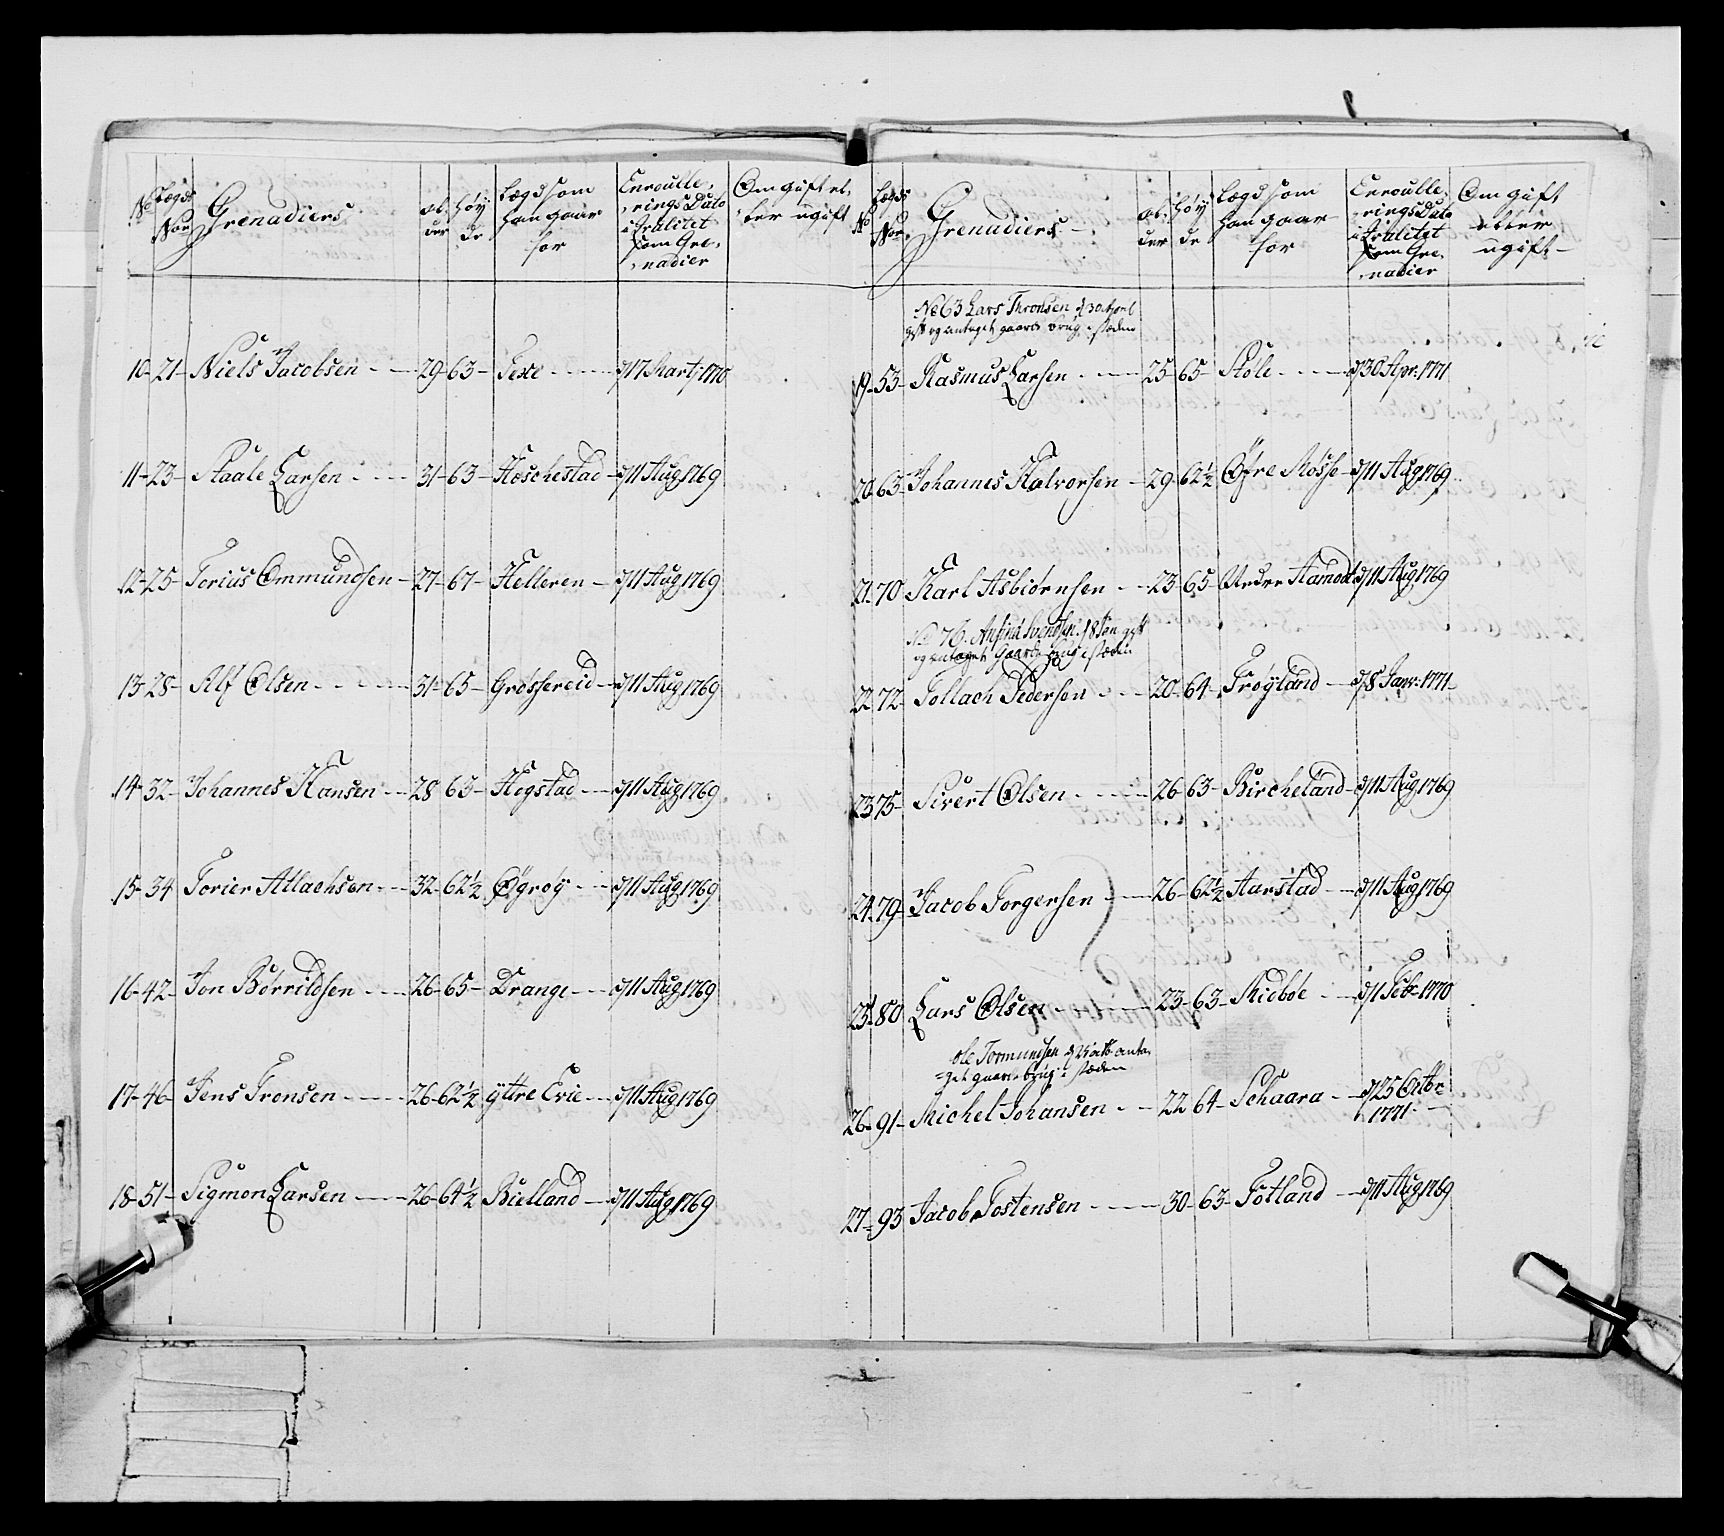 No Lægds Nor Grenadiers al- der Høy de Lægd som han gaar for Enroulle- rings Dato i Qvalitet som Gre- nadier Om gift el- ler ugift
10 - 21 - Niels Jacobsen - 29 - 63 - Texe - d 17 Marty 1770
11 - 23 - Staale Larsen - 31 - 63 - Hæschestad - d 11 Aug 1769
12 - 25 - Torius Ommundsen - 27 - 67 - Helleren - d 11 Aug 1769
13 - 28 - Alf Olsen - 31 - 65 - Grøssereid - d 11 Aug 1769
14 - 32 - Johannes Hansen - 28 - 63 - Hegstad - d 11 Aug 1769
15 - 34 Torier Atlachsen - 32 - 62½ Øgrøy - d 11 Aug 1769
16 - 42 - Jon Børrildsen - 26 - 65 - Drange - d 11 Aug 1769
17 - 46 - Jens Tronsen - 26 - 62½ ÿttre Evie - d 11 Aug 1769
18 - 51 - Sigmon Larsen - 26 - 64½ Bielland - d 11 Aug 1769
No Lægds Nor Grenadiers al- der Høy de Lægd som han gaar for Enroulle- rings Dato i Qvalitet som Gre- nadier Om gift eller ugift
No 63 Lars Thronsen d 30 April
gift og antaget gaards brug i stæden
19 - 53 - Rasmus Larsen - 25 - 65 - Støle - d 30 Apr: 1771
20 - 63 - Johannes Halvorsen - 29 - 62½ Øfre Mosse - d 11 Aug 1769
21 - 70 Karl Asbiørnsen - 23 - 65 - Nedre Aamodt d 11 Aug 1769
No 76. Anfind Svendsen d 8 Jan gift
og antaget Gaards brug i stæden
22 - 72 - Tollach Pedersen - 20 - 64 - Frøyland - d 8 Janr: 1771
23 75 - Sivert Olsen - 26 - 63 - Bircheland - d 11 Aug 1769
24 - 79 - Jacob Torgersen - 26 - 62½ Aarstad - d 11 Aug 1769
25 - 80 Lars Olsen - 23 - 63 - Midbøe - d 1 Febr 1770
Ole Tormundsen d 25 octb anta-
get gaards brug i stæden
26 - 91 - Michel Johansen - 22 64 - Schaara - d 25 Octbr 1771
27 - 93 Jacob Tostensen - 30 - 63 - Fotland - d 11 Aug 1769